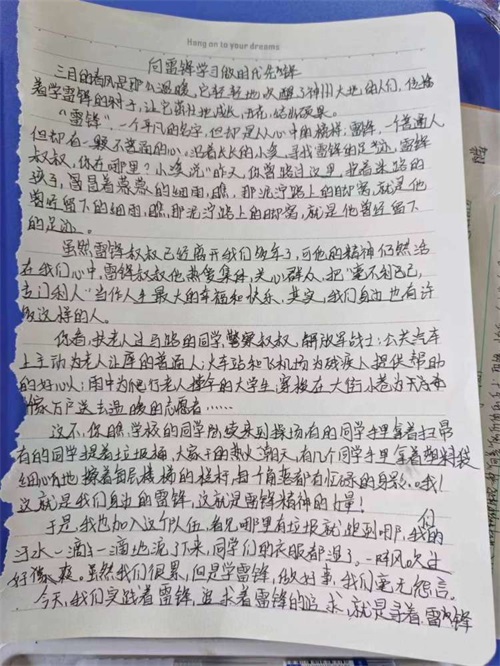 Hang on to your dreams
向雷锋学习做时代先锋
三月的春风是那么温暖,它轻轻地吹醒了神州大地的人们,传播
着学雷锋的种子,让它茁壮地成长,开花,结出硕果。
"雷锋",一个平凡的名字,但却是人人心中的榜样,雷锋,一个普通人
但却有一颗不普通的心。沿着长长的小溪,寻找雷锋的足迹。雷锋
叔叔,你在哪里?小溪说:"昨天,你曾路过这里,抱着迷路的
孩子,冒着蒙蒙的细雨,瞧,那泥泞路上的脚窝,就是他
曾经留下的细雨,瞧,那泥泞路上的脚窝,就是他曾经留下
的足迹。
虽然雷锋叔叔已经离开我们多年了,可他的精神仍然活
在我们心中,雷锋叔叔他热爱集体,关心群众,把"毫不利己,
专门利人"当作人生最大的幸福和快乐,其实,我们身边也有许
多这样的人。
你看,扶老人过马路的同学,警察叔叔、解放军战士;公共汽车
上主动为老人让座的普通人;火车站和飞机场为残疾人提供帮助
的好心人;雨中为他们老人撑伞的大学生;穿梭在大街小巷为千家
万户送去温暖的志愿者……
这不,你瞧,学校的同学陆续来到操场,有的同学手里拿着扫帚
有的同学提着垃圾桶,大家干的热火朝天,有几个同学手里拿着塑料袋
细心地擦着每层楼梯的栏杆,每个角落都有忙碌的身影。哦!
这就是我们身边的雷锋,这就是雷锋精神的力量!
于是,我也加入这个队伍,看见哪里有垃圾就跑到哪,我们的
汗水一滴一滴地流了下来,同学们的衣服都湿了。一阵风吹过
好凉爽。虽然我们很累,但是学雷锋,做好事,我们毫无怨言。
今天,我们实践着雷锋,追求着雷锋的追求,就是寻着雷锋